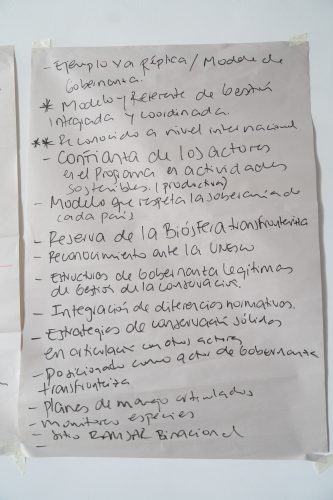 - Ejemplo va Réplica / Modelo de
Gobernanza.
* Modelo y Referente de Gestión
integrada y coordinada.
** Reconocido a nivel internacional
- Confianza de los actores
en el Programa en actividades
sostenibles. (productiva)
- Modelo que respeta la soberanía de
cada país
- Reserva de la Biósfera transfronteriza
- Reconocimiento ante la UNESCO
- Estructuras de Gobernanza legítimas
de Gestión de la conservación.
- Integración de diferencias normativos.
- Estrategias de conservación sólidas
en articulación con otros actores
- Posicionado como actor de Gobernanza
transfronteriza
- Planes de manejo articulados
- monitoreo especies
- Sitio RAMSAR Binacional
-